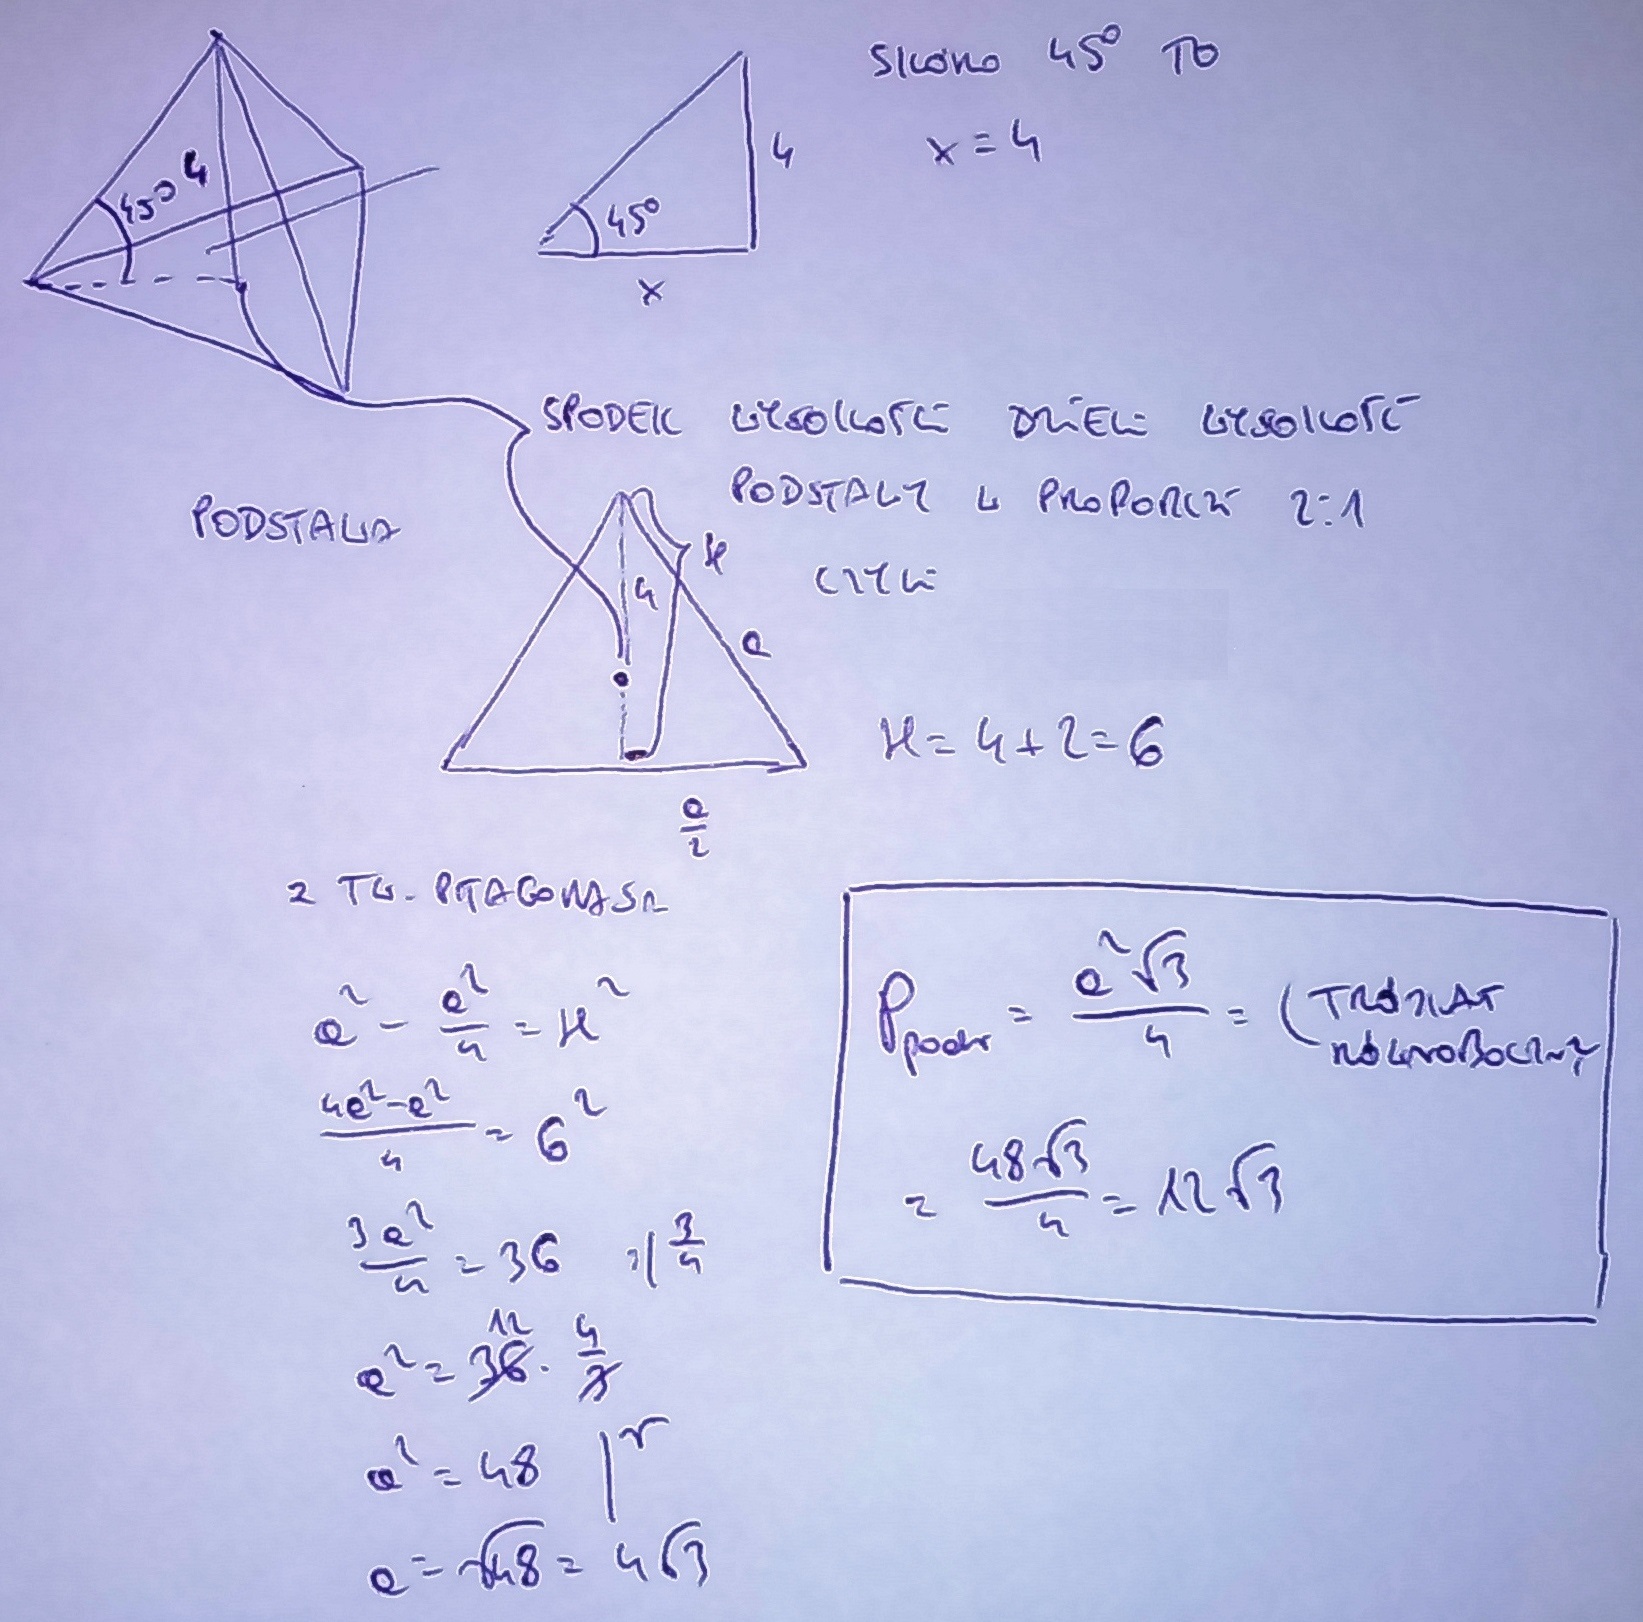 SKORO 45° TO
x = 4
45° 4
45° 4
x
SPODEK WYSOKOŚCI DZIELI WYSOKOŚĆ
PODSTAWY W PROPORCJI 2:1
PODSTAWA
CZYLI
4 H a
H = 4 + 2 = 6
a/2
Z TW. PITAGORASA
a² - a²/4 = H²
(4a² - a²)/4 = 6²
3a²/4 = 36 :| 3/4
a² = 36 12 · 4/3
a² = 48 |√
a = √48 = 4√3
P podst = a²√3/4 = (TRÓJKĄT
RÓWNOBOCZNY
= 48√3/4 = 12√3